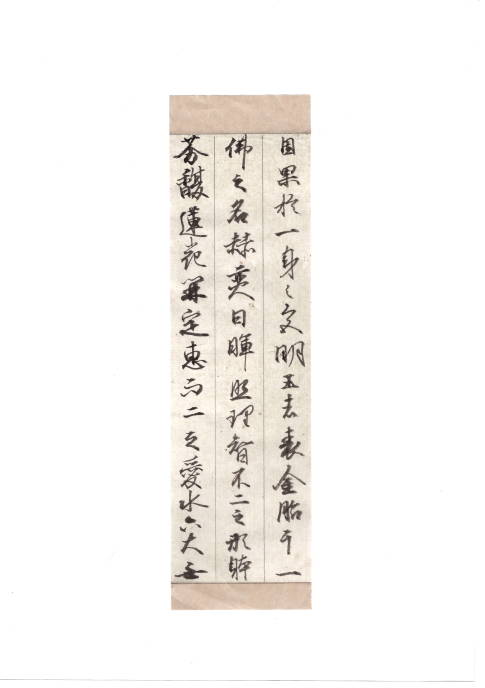 因果於一身〻文明五者表金胎于一
佛之名赫奕日暉照理智不二之形躰
芬馥蓮花開定惠而二之愛水六大無